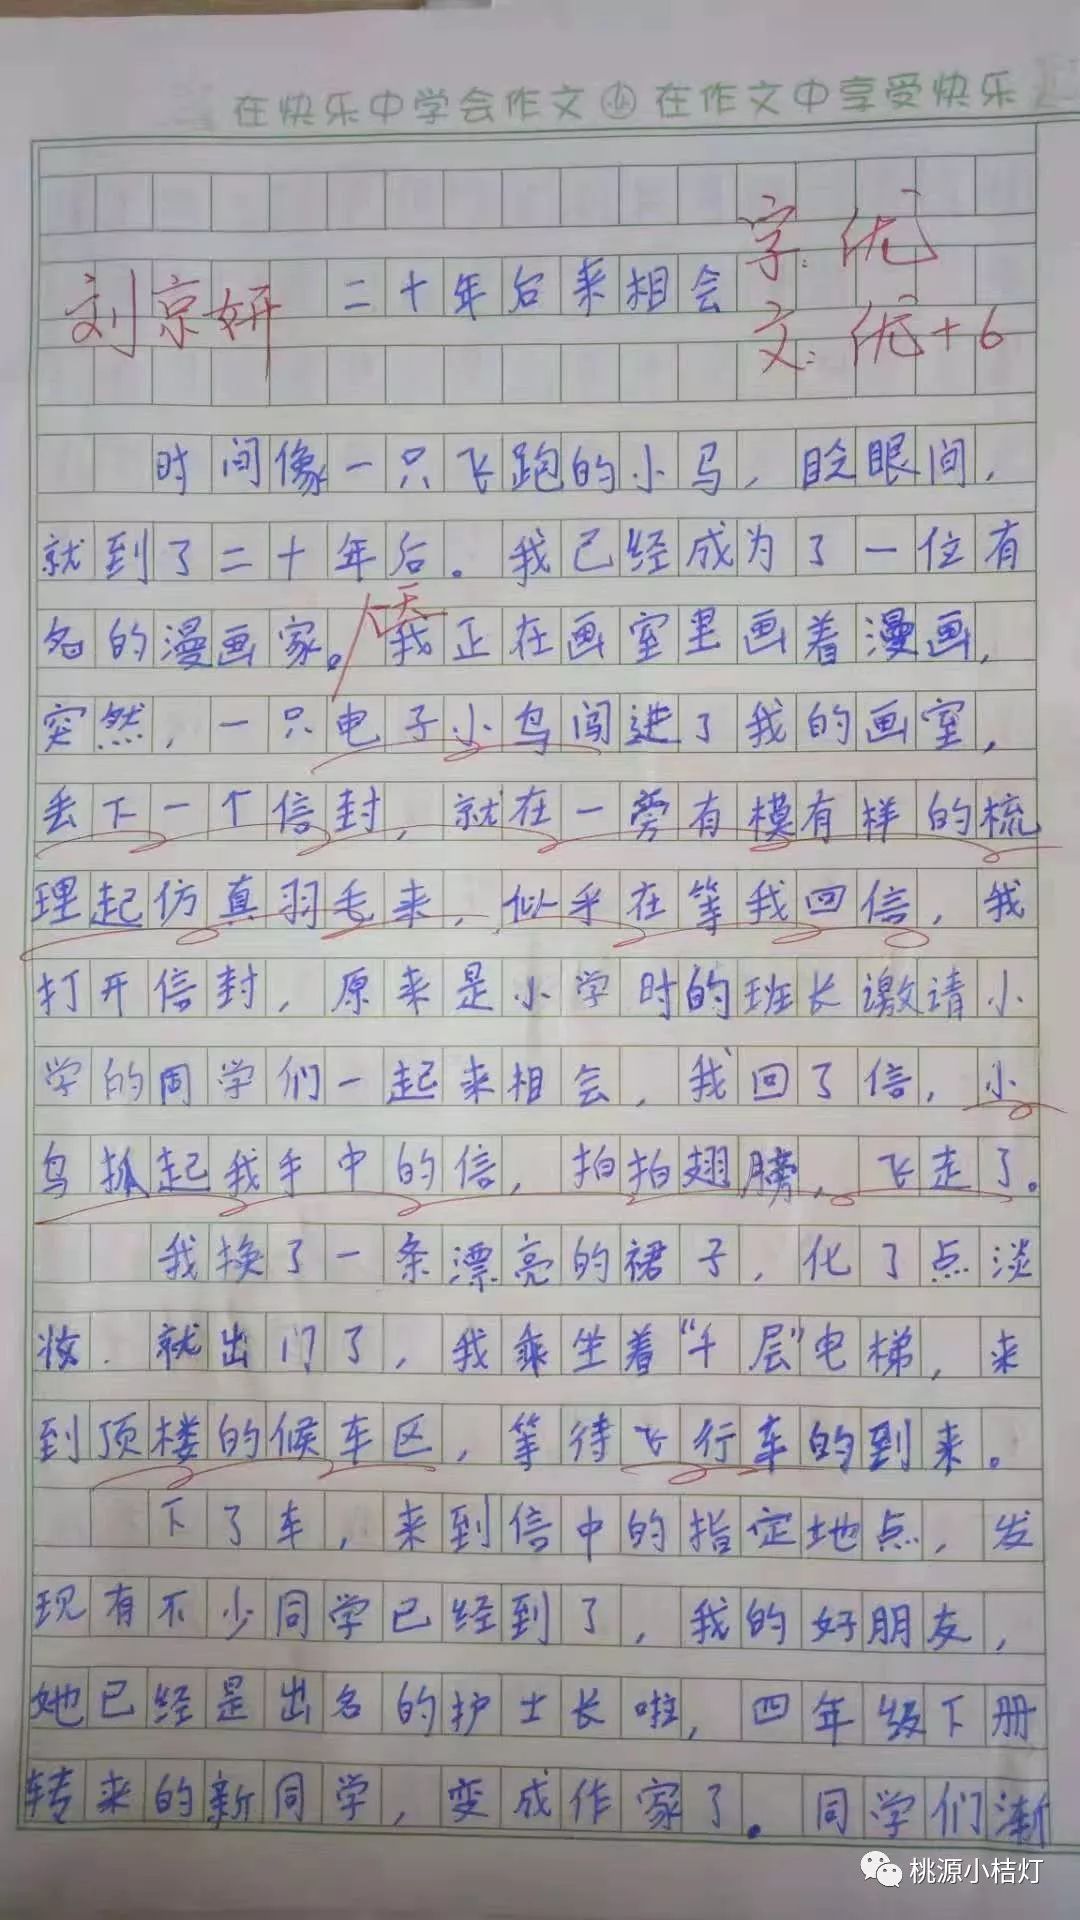 在快乐中学会作文 在作文中享受快乐
字:优
刘京妍 二十年后来相会
文:优+6
时间像一只飞跑的小马,眨眼间,
就到了二十年后。我已经成为了一位有
一天
名的漫画家。我正在画室里画着漫画,
突然,一只电子小鸟闯进了我的画室,
丢下一个信封,就在一旁有模有样的梳
理起仿真羽毛来,似乎在等我回信,我
打开信封,原来是小学时的班长邀请小
学的同学们一起来相会,我回了信,小
鸟抓起我手中的信,拍拍翅膀,飞走了。
我换了一条漂亮的裙子,化了点淡
妆.就出门了,我乘坐着“千层”电梯,来
到顶楼的候车区,等待飞行车的到来。
下了车,来到信中的指定地点,发
现有不少同学已经到了,我的好朋友,
她已经是出名的护士长啦,四年级下册
转来的新同学,变成作家了。同学们渐
桃源小桔灯